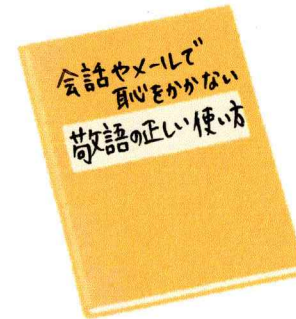 会話やメールで
恥をかかない
敬語の正しい使い方